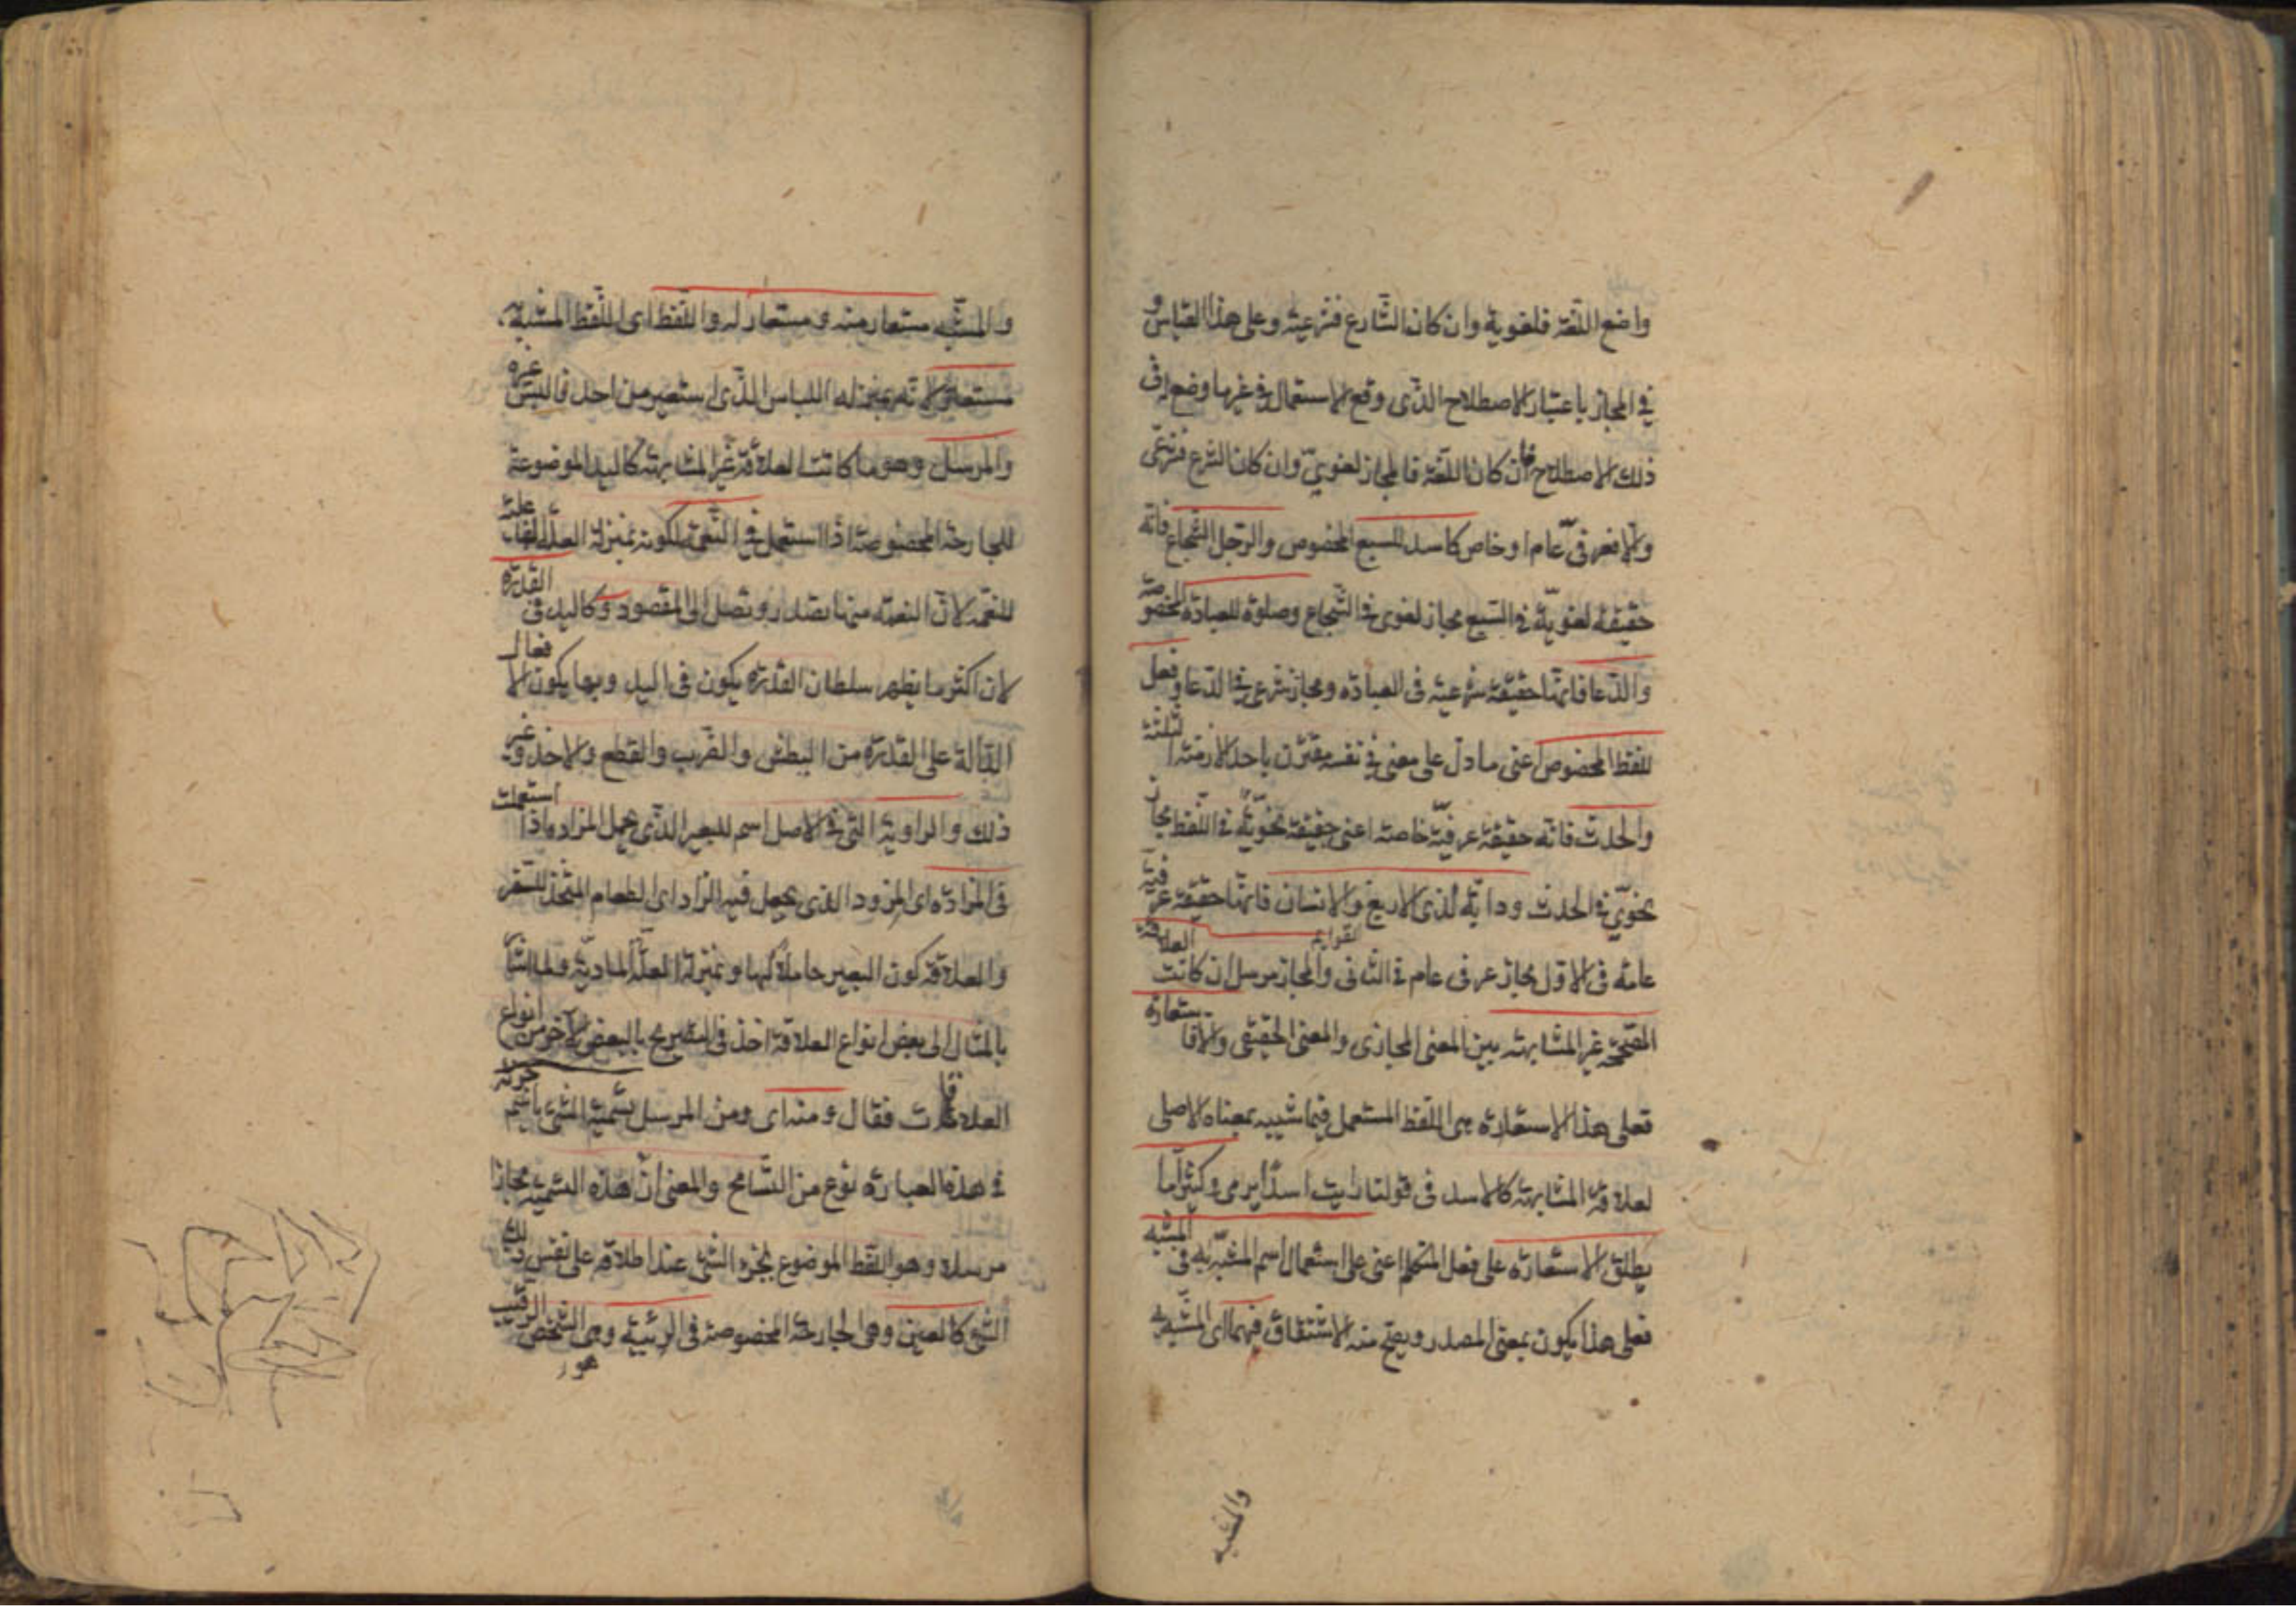 واضع اللغة فلغوية وان كان الشارع فشرعية وعلى هذا القياس و
في المجاز باعتبار الاصطلاح الذى وقع الاستعمال في غيرما وضع له فى
ذلك الاصطلاح فان كان اللغة فالمجاز لغوىّ وان كان الشرع فشرعى
والا فعرفىّ عام او خاص كاسد للسبع المخصوص والرجل الشجاع فانه
حقيقة لغويّة في السبع مجاز لغوى في الشجاع وصلوة للعبادة المخصوصة
والدعا فانّها حقيقة شرعية فى العبادة ومجاز شرعى في الدعا وفعل
للفظ المخصوص اعنى ما دلّ على معنى في نفسه مقترن باحد الازمنة الثلثة
والحدث فانه حقيقة عرفيّة خاصة اعنى حقيقة نحويّة في اللفظ مجاز
نحوىّ في الحدث ودابّة لذى الاربع والانسان فانّها حقيقة عرفية
القوايم
عامة فى الاول مجاز عرفى عام في الثانى والمجاز مرسل ان كانت العلاقة
المصحّحة غير المشابهة بين المعنى المجازى والمعنى الحقيقى والا فاستعارة
فعلى هذا الاستعارة هى اللفظ المستعمل فيما شبيه بمعناه الاصلى
لعلاقة المشابهة كالاسد فى قولنا رايت اسدًا يرمى وكثيرًا ما
يطلق الاستعارة على فعل المتكلم اعنى على استعمال اسم المشبّه به فى المشبه
فعلى هذا يكون بمعنى المصدر ويصح منه الاشتقاق فهما اى المشبه به
والمشبه
والمشبّه مستعار منه و مستعار له واللفظ اى اللفظ المشبه به
مستعار لانّه بمنزلة اللباس الذّى استعير من احد فالبس غيره
والمرسل وهو ما كانت العلاقة غير المشابهة كاليد الموضوعة
للجارحة المخصوصة اذا استعمل في النّعمة لكونه بمنزلة العلّة الفاعلية
للنعمة لانّ النعمة منها تصدر وتصل الى المقصود وكاليد فى القدرة
لان اكثر ما يظهر سلطان القدرة يكون فى اليد وبها يكون الافعال
الدّالة على القدرة من البطش والضرب والقطع والاخذ وغير
ذلك والراوية التى في الاصل اسم للبعير الذّى يحمل المزادة اذا استعملت
فى المزادة اى المزود الذى يجعل فيه الزّاد اى الطعام المتخذ للسفر
والعلاقة كون البعير حاملاً لها وبمنزلة العلّة الماديّة ولما اشار
بالمثال الى بعض انواع العلاقة اخذ فى التصريح بالبعض الآخر من انواع
العلاقات فقال ومنه اى ومن المرسل تسمية الشئ باسم جزئه
في هذه العبارة نوع من التّسامح والمعنى انّ هذه التسمية مجازا
مرسلا وهو اللفظ الموضوع لجزء الشئ عند اطلاقه على نفس ذلك
الشئ كالعين وهى الجارحة المخصوصة فى الربيئة وهى الشخص الرقيب